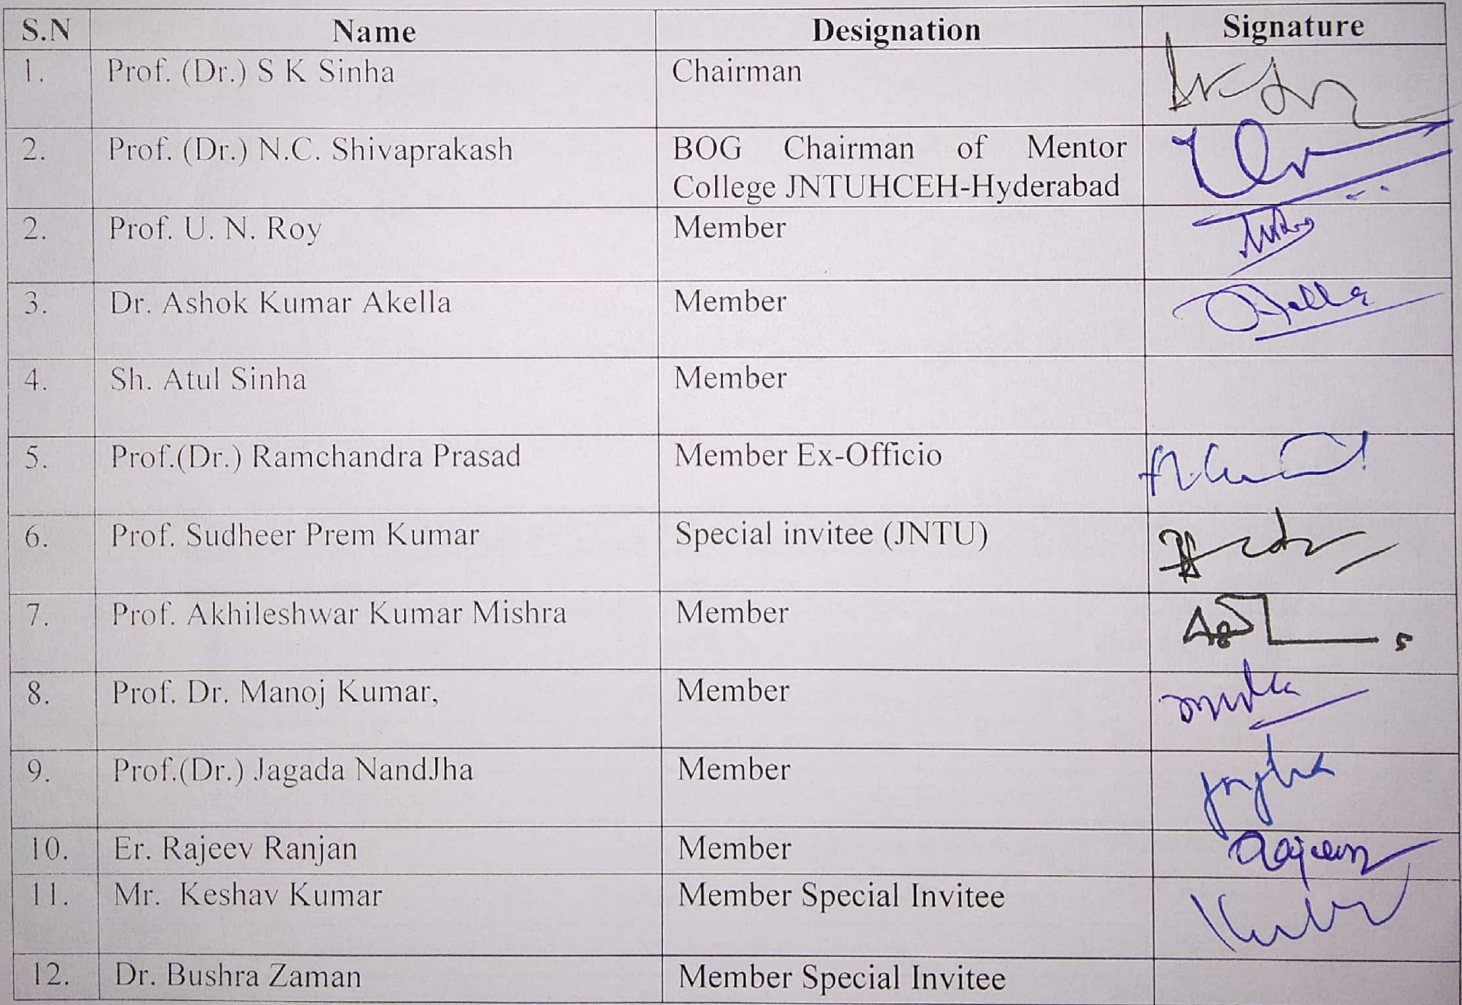 S.N Name Designation Signature
1. Prof. (Dr.) S K Sinha Chairman
2. Prof. (Dr.) N.C. Shivaprakash BOG Chairman of Mentor
College JNTUHCEH-Hyderabad
2. Prof. U. N. Roy Member
3. Dr. Ashok Kumar Akella Member
4. Sh. Atul Sinha Member
5. Prof.(Dr.) Ramchandra Prasad Member Ex-Officio
6. Prof. Sudheer Prem Kumar Special invitee (JNTU)
7. Prof. Akhileshwar Kumar Mishra Member
8. Prof. Dr. Manoj Kumar, Member
9. Prof.(Dr.) Jagada NandJha Member
10. Er. Rajeev Ranjan Member
11. Mr. Keshav Kumar Member Special Invitee
12. Dr. Bushra Zaman Member Special Invitee